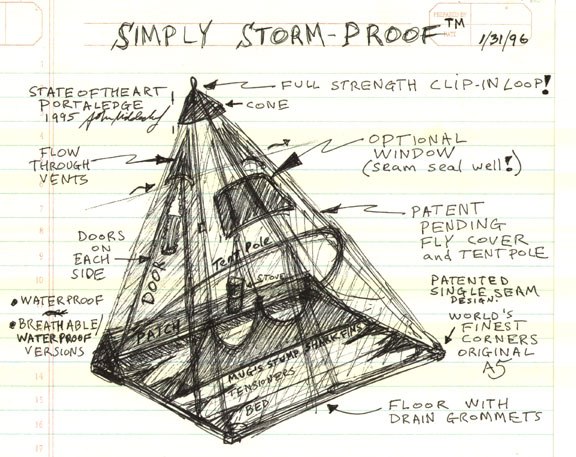 SIMPLY STORM-PROOF™
1/31/96
STATE OF THE ART
PORTALEDGE
1995
FULL STRENGTH CLIP-IN LOOP!
CONE
FLOW
THROUGH
VENTS
OPTIONAL
WINDOW
(seam seal well!)
PATENT
PENDING
FLY COVER
and TENTPOLE
DOORS
ON
EACH
SIDE
DOOR
Tent Pole
STOVE
PATENTED
SINGLE SEAM
DESIGN
• WATERPROOF
• BREATHABLE/
WATERPROOF
VERSIONS
WORLD'S
FINEST
CORNERS
ORIGINAL
A5
PATCH
MUGS STUMP SHARKFINS
TENSIONERS
BED
FLOOR WITH
DRAIN GROMMETS